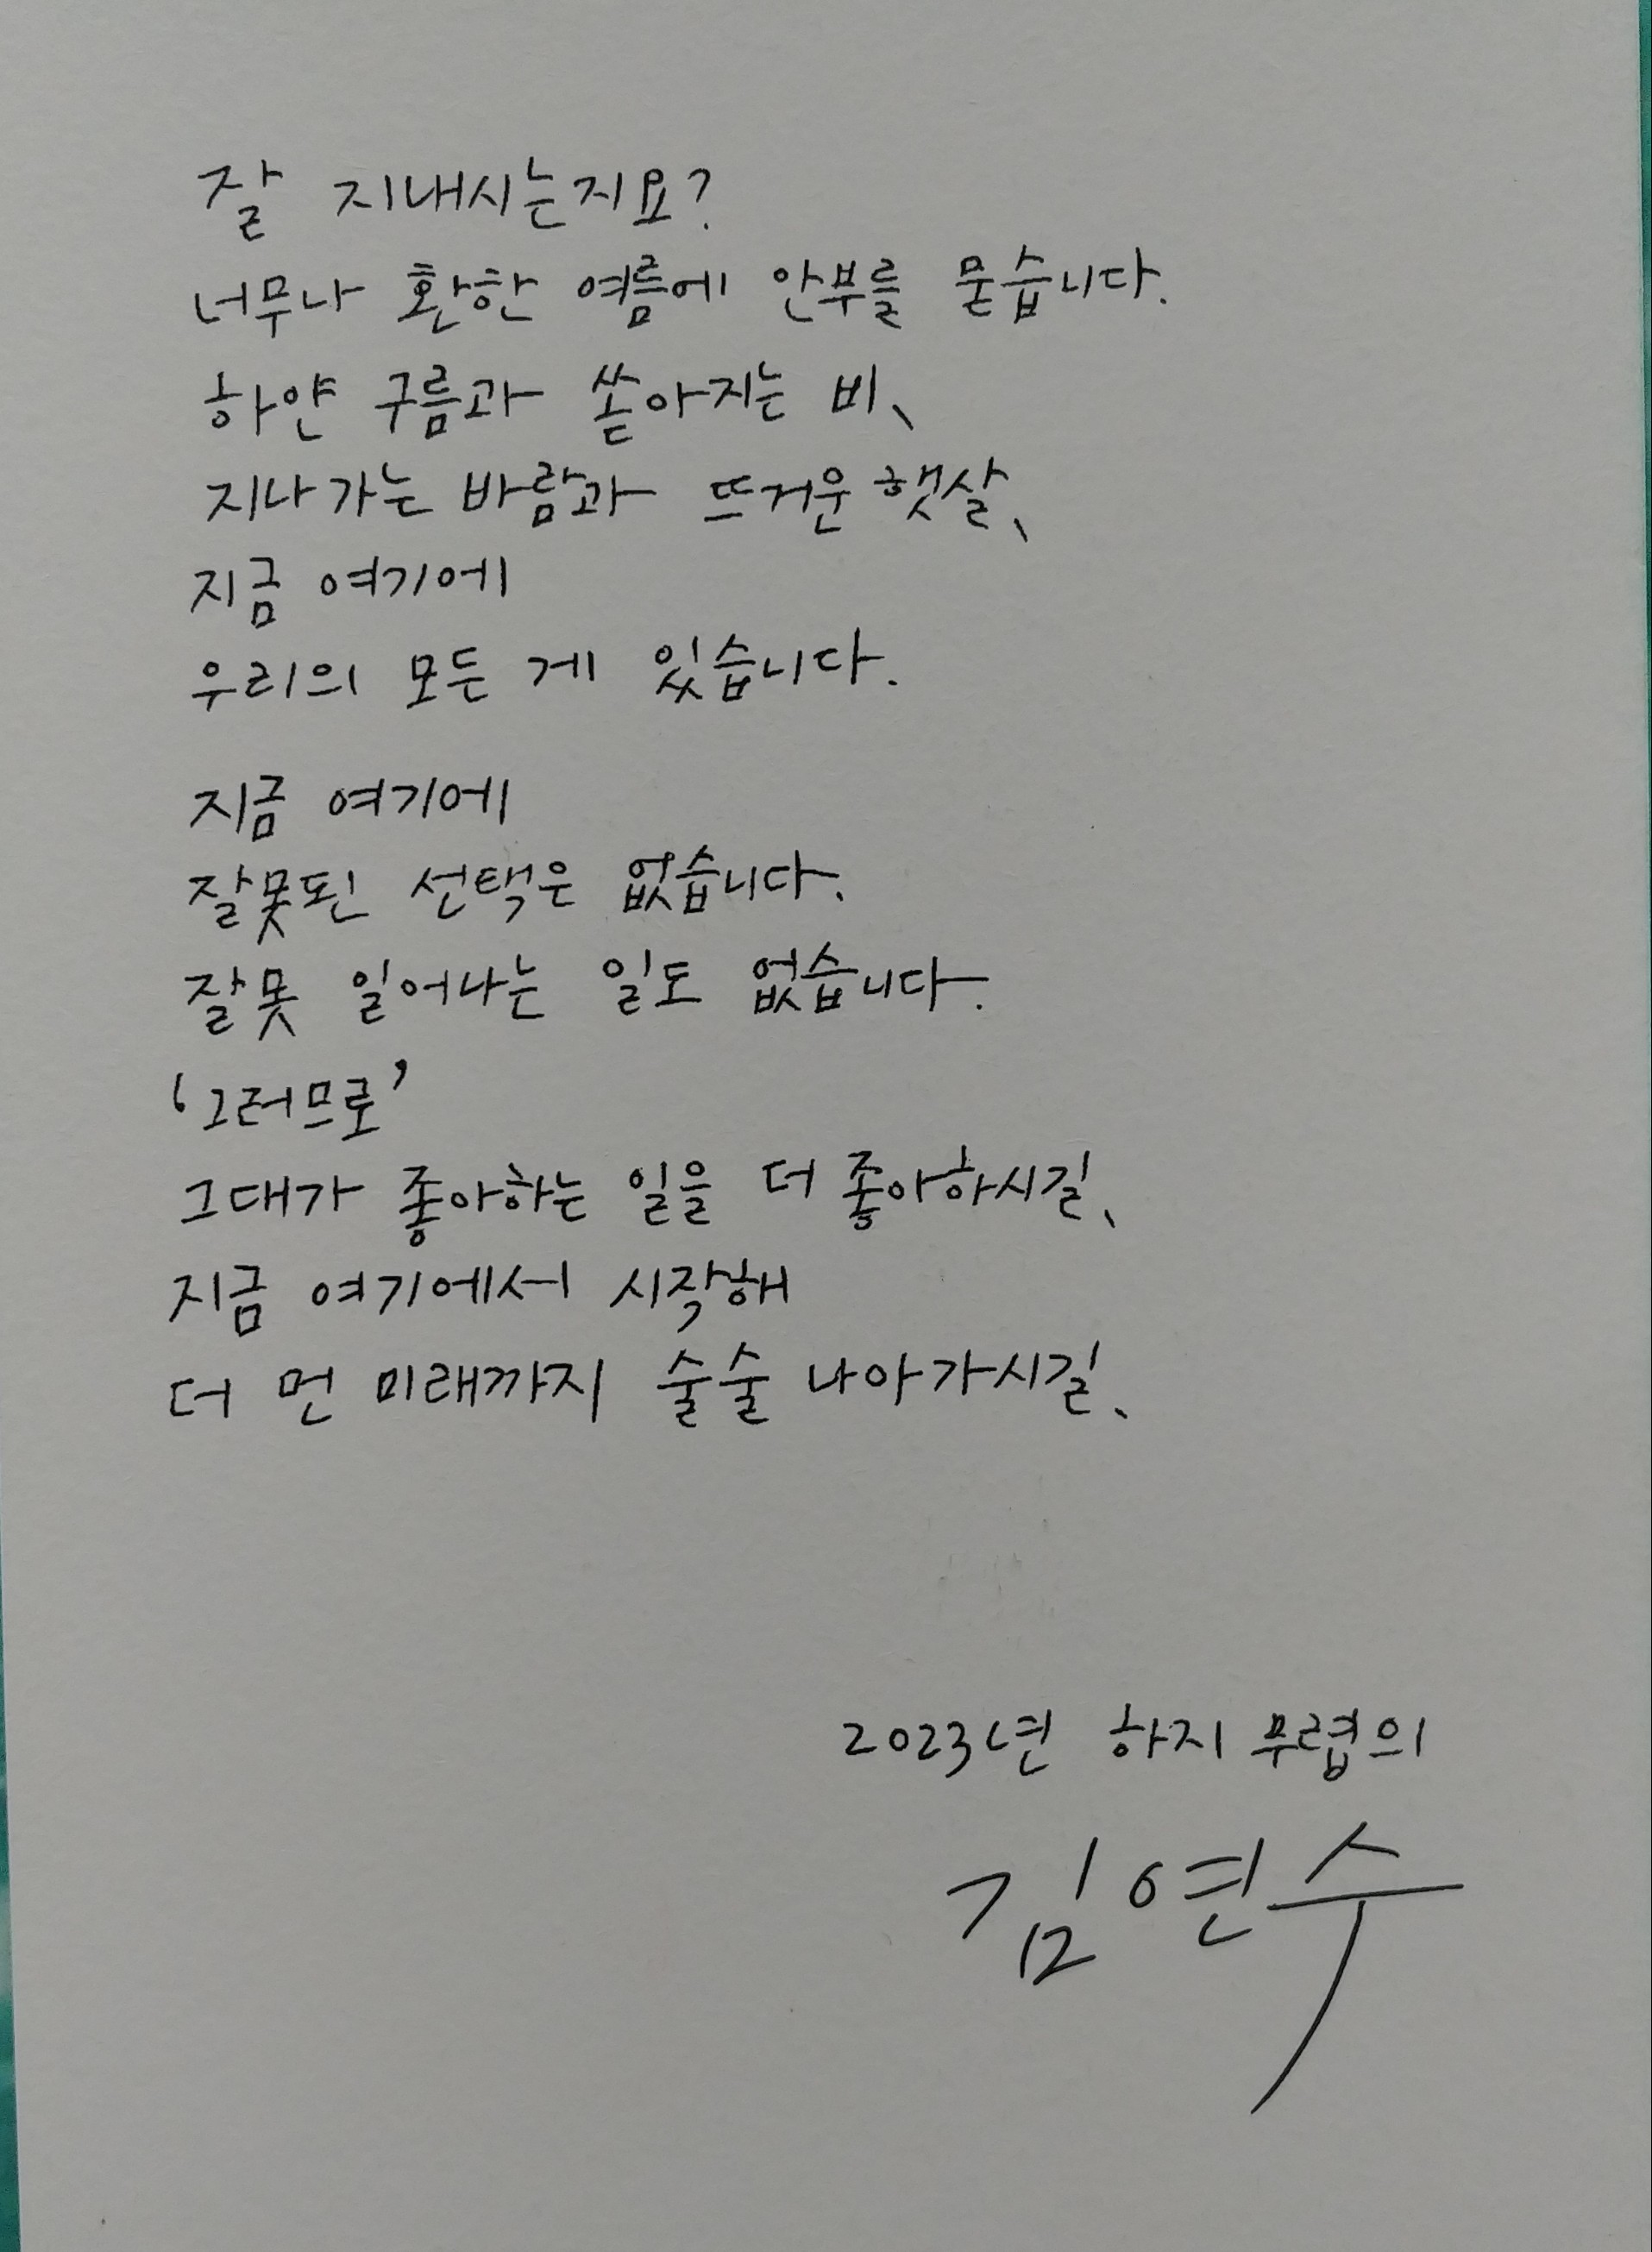 잘 지내시는지요?
너무나 환한 여름에 안부를 묻습니다.
하얀 구름과 쏟아지는 비、
지나가는 바람과 뜨거운 햇살、
지금 여기에
우리의 모든 게 있습니다.
지금 여기에
잘못된 선택은 없습니다.
잘못 일어나는 일도 없습니다.
‘그러므로’
그대가 좋아하는 일을 더 좋아하시길、
지금 여기에서 시작해
더 먼 미래까지 술술 나아가시길、
2023년 하지 무렵의
김연수